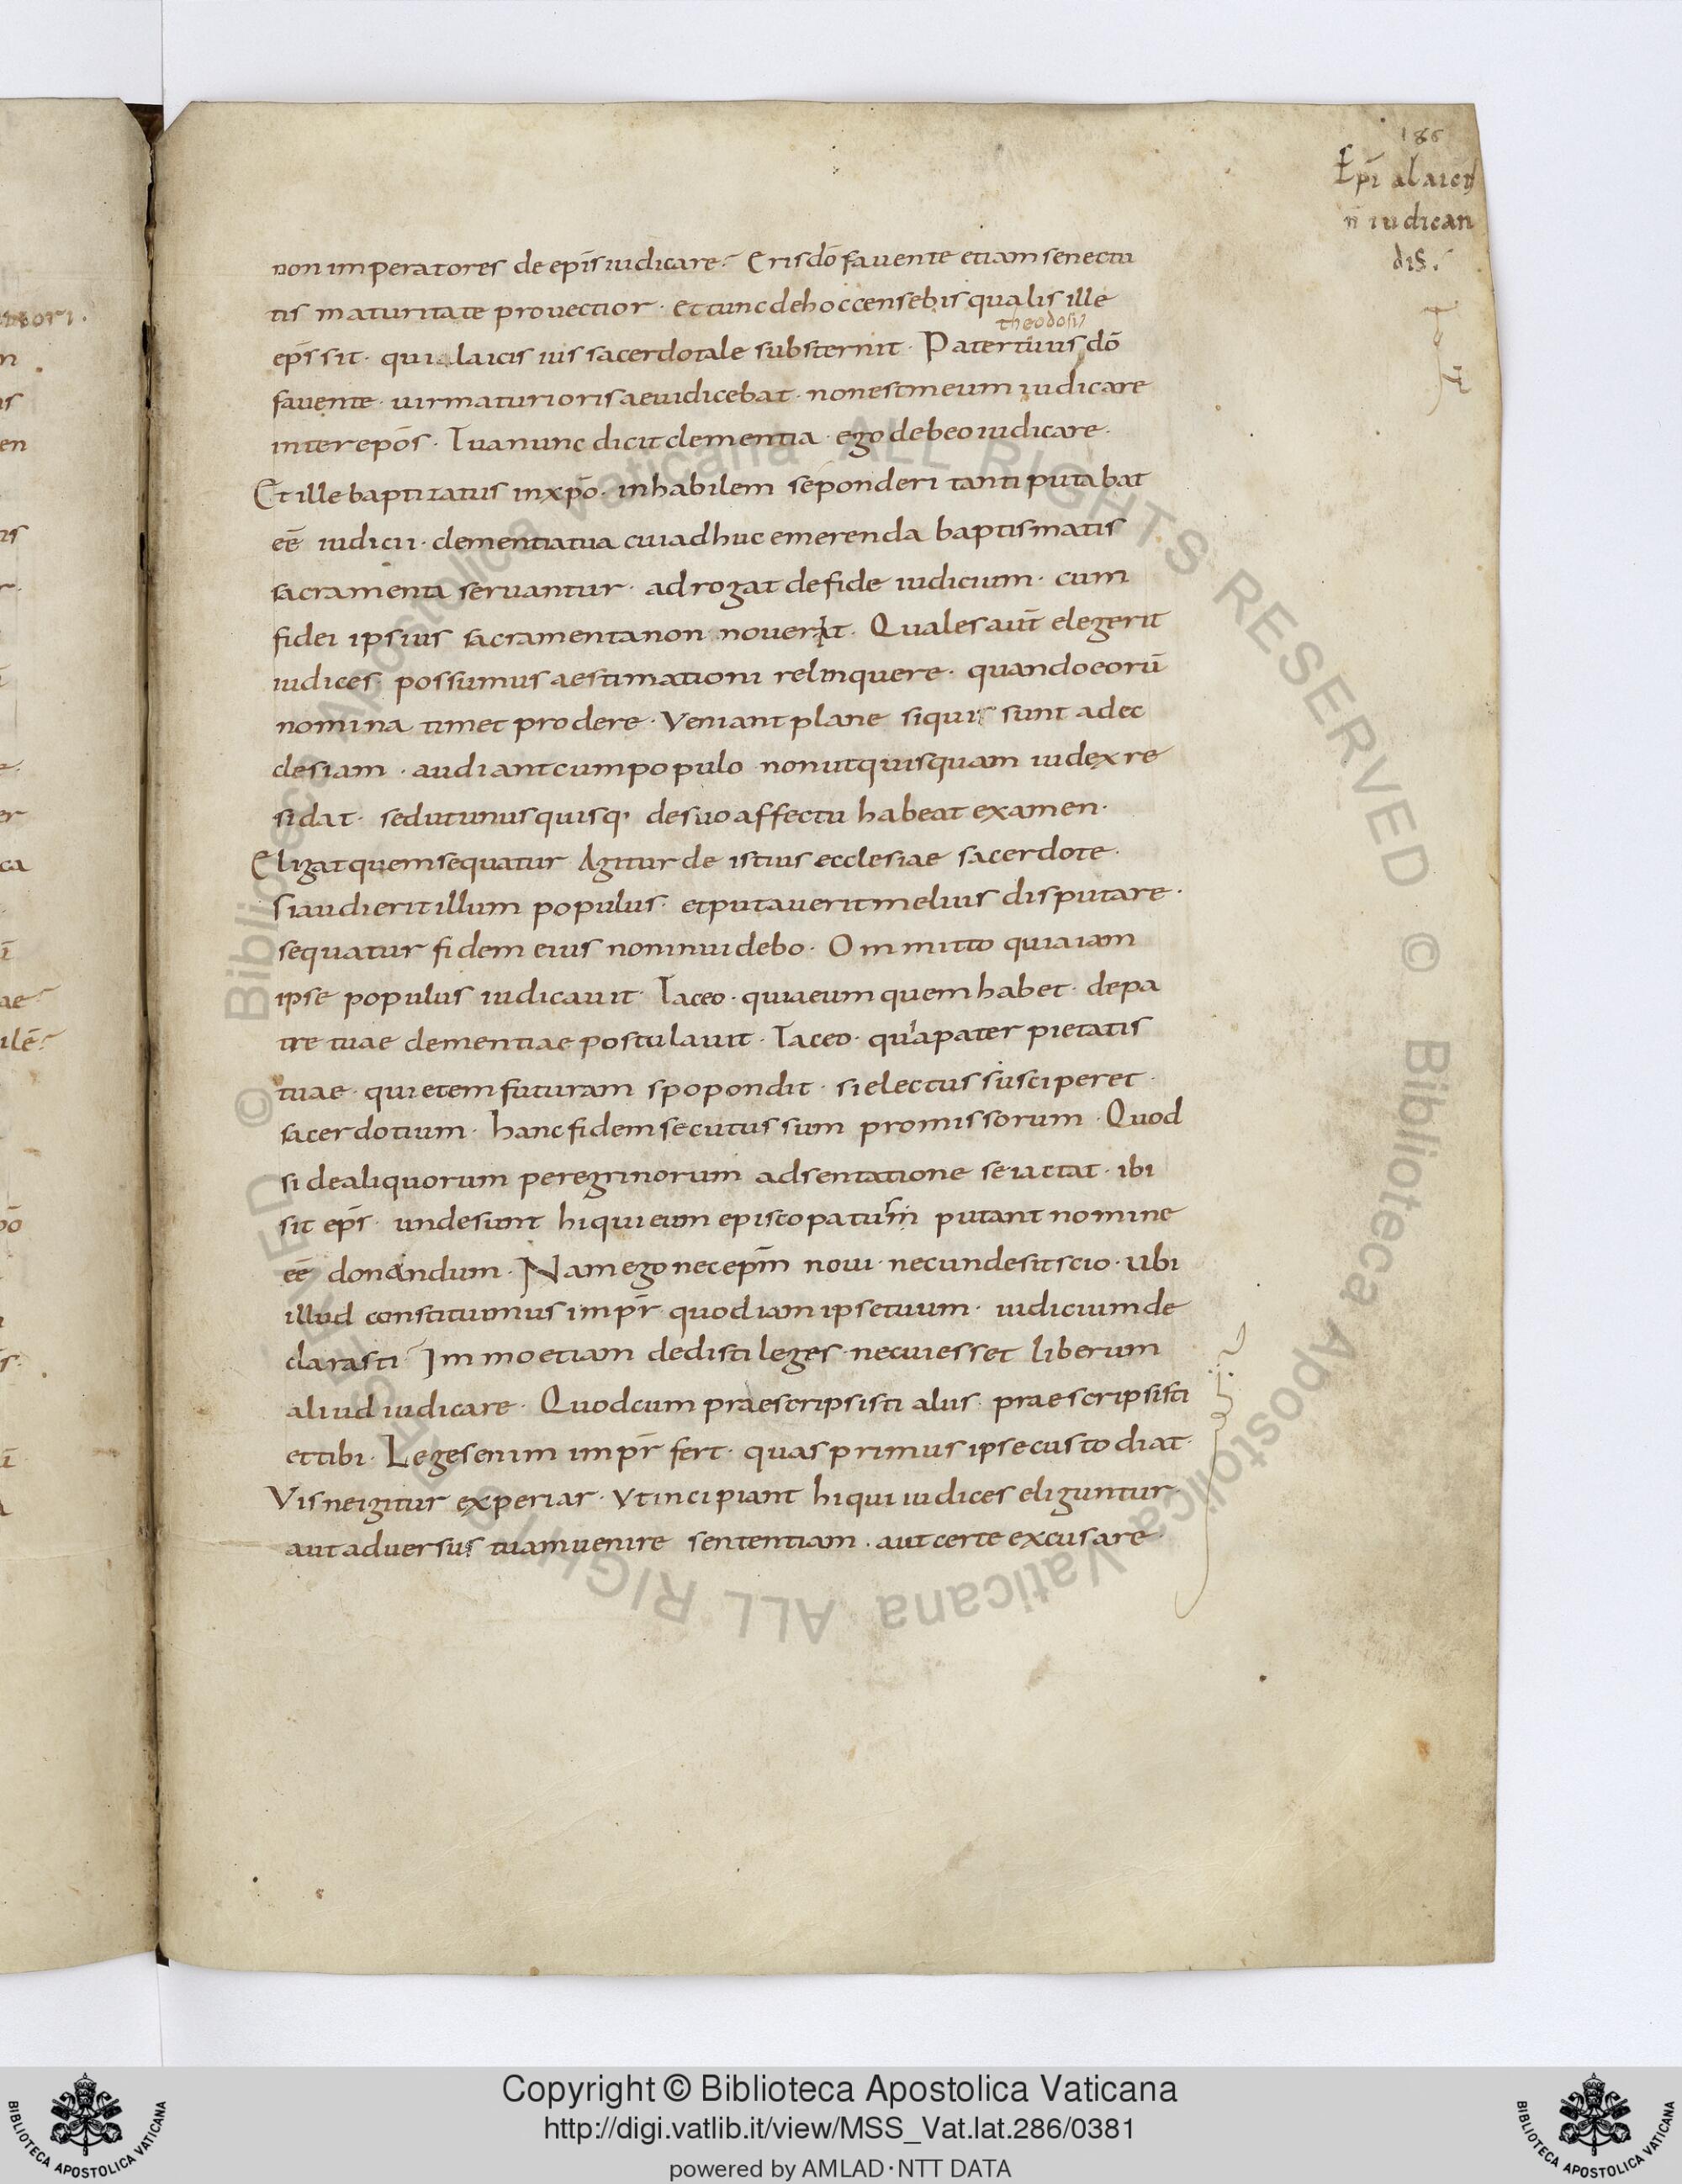 186
Ep̄i a laicis
n̄ iudican
dis.
non imperatores de ep̄is iudicare? Eris dō favente etiam senectu
tis maturitate provectior · et tunc de hoc censebis qualis ille
theodosius
ep̄s sit · qui laicis ius sacerdotale substernit · Pater tuus dō
favente · vir maturioris aevi dicebat · non est meum iudicare
inter ep̄os · Tua nunc dicit clementia · ego debeo iudicare ·
Et ille baptizatus in xp̄o · inhabilem se ponderi tanti putabat
eē iudicii · clementia tua cui adhuc emerenda baptismatis
sacramenta servantur · adrogat de fide iudicium · cum
fidei ipsius sacramenta non noverit · Quales aut̄ elegerit
iudices possumus aestimationi relinquere · quando eorū
nomina timet prodere · Veniant plane si qui sunt ad ec
clesiam · audiant cum populo non ut quisquam iudex re
sidat · sed ut unusquisq; de suo affectu habeat examen ·
Eligat quem sequatur Agitur de istius ecclesiae sacerdote ·
si audierit illum populus · et putaverit melius disputare ·
sequatur fidem eius non invidebo · Ommitto quia iam
ipse populus iudicavit · Taceo · quia eum quem habet · de pa
tre tuae clementiae postulavit · Taceo · quia pater pietatis
tuae · quietem futuram spopondit · si electus susciperet ·
sacerdotium · hanc fidem secutus sum promissorum · Quod
si de aliquorum peregrinorum adsentatione se iactat · ibi
sit ep̄s · unde sunt hi qui eum episcopatus putant nomine
eē donandum · Nam ego nec ep̄m novi · nec unde sit scio · Ubi
illud constituimus imp̄r quod iam ipse tuum · iudicium de
clarasti Immo etiam dedisti leges · nec cui esset liberum
aliud iudicare · Quod cum praescripsisti aliis · praescripsisti
et tibi · Leges enim imp̄r fert · quas primus ipse custodiat ·
Vis ne igitur experiar · Ut incipiant hi qui iudices eliguntur
aut adversus tuam venire sententiam · aut certe excusare ·
© Biblioteca Apostolica Vaticana ALL RIGHTS RESERVED © Biblioteca Apostolica Vaticana ALL RIGHTS RESERVED
Copyright © Biblioteca Apostolica Vaticana
http://digi.vatlib.it/view/MSS_Vat.lat.286/0381
powered by AMLAD·NTT DATA
BIBLIOTECA APOSTOLICA VATICANA
BIBLIOTECA APOSTOLICA VATICANA